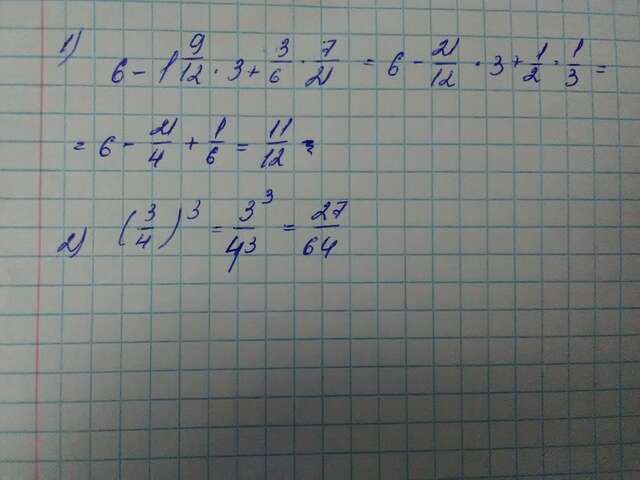 1) 6 - 1 9/12 · 3 + 3/6 · 7/21 = 6 - 21/12 · 3 + 1/2 · 1/3 =
= 6 - 21/4 + 1/6 = 11/12
2) (3/4)³ = 3³/4³ = 27/64